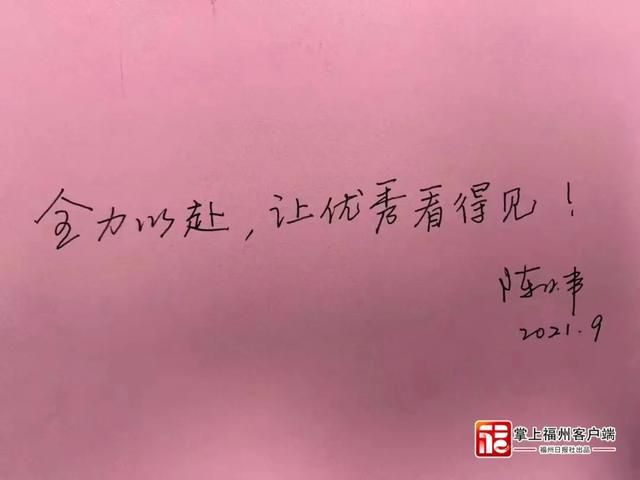 全力以赴，让优秀看得见！
2021.9
掌上福州客户端
福州日报社出品